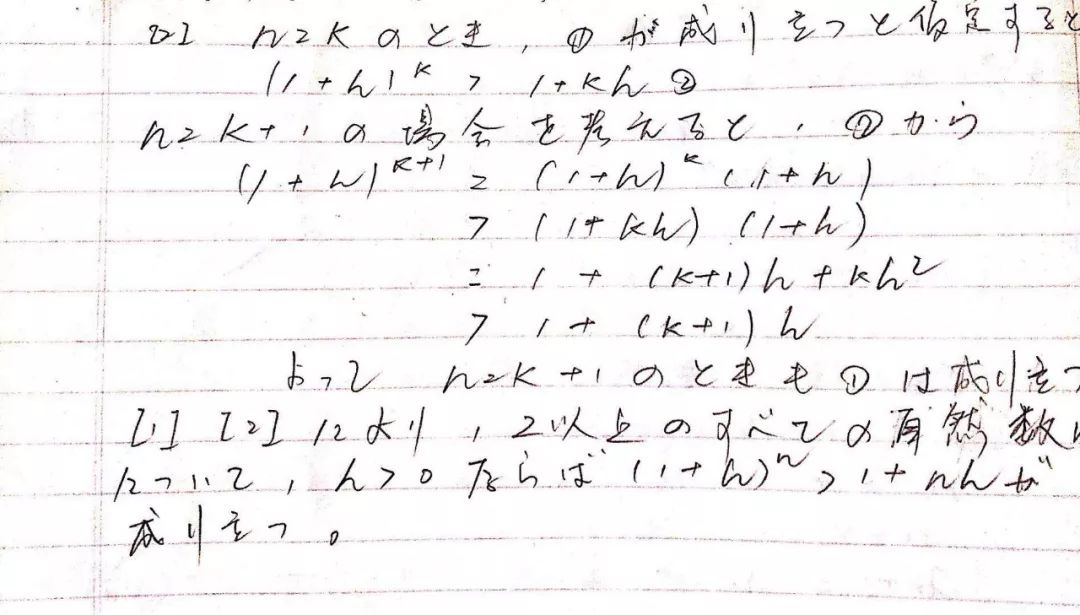 [2] n=kのとき,①が成り立つと仮定すると
(1+h)^k > 1+kh ②
n=k+1の場合を考えると,②から
(1+h)^{k+1} = (1+h)^k (1+h)
> (1+kh) (1+h)
= 1 + (k+1)h + kh^2
> 1 + (k+1)h
よって n=k+1のときも①は成り立つ
[1] [2]により,2以上のすべての自然数n
について,h>0ならば (1+h)^n > 1+nhが
成り立つ。